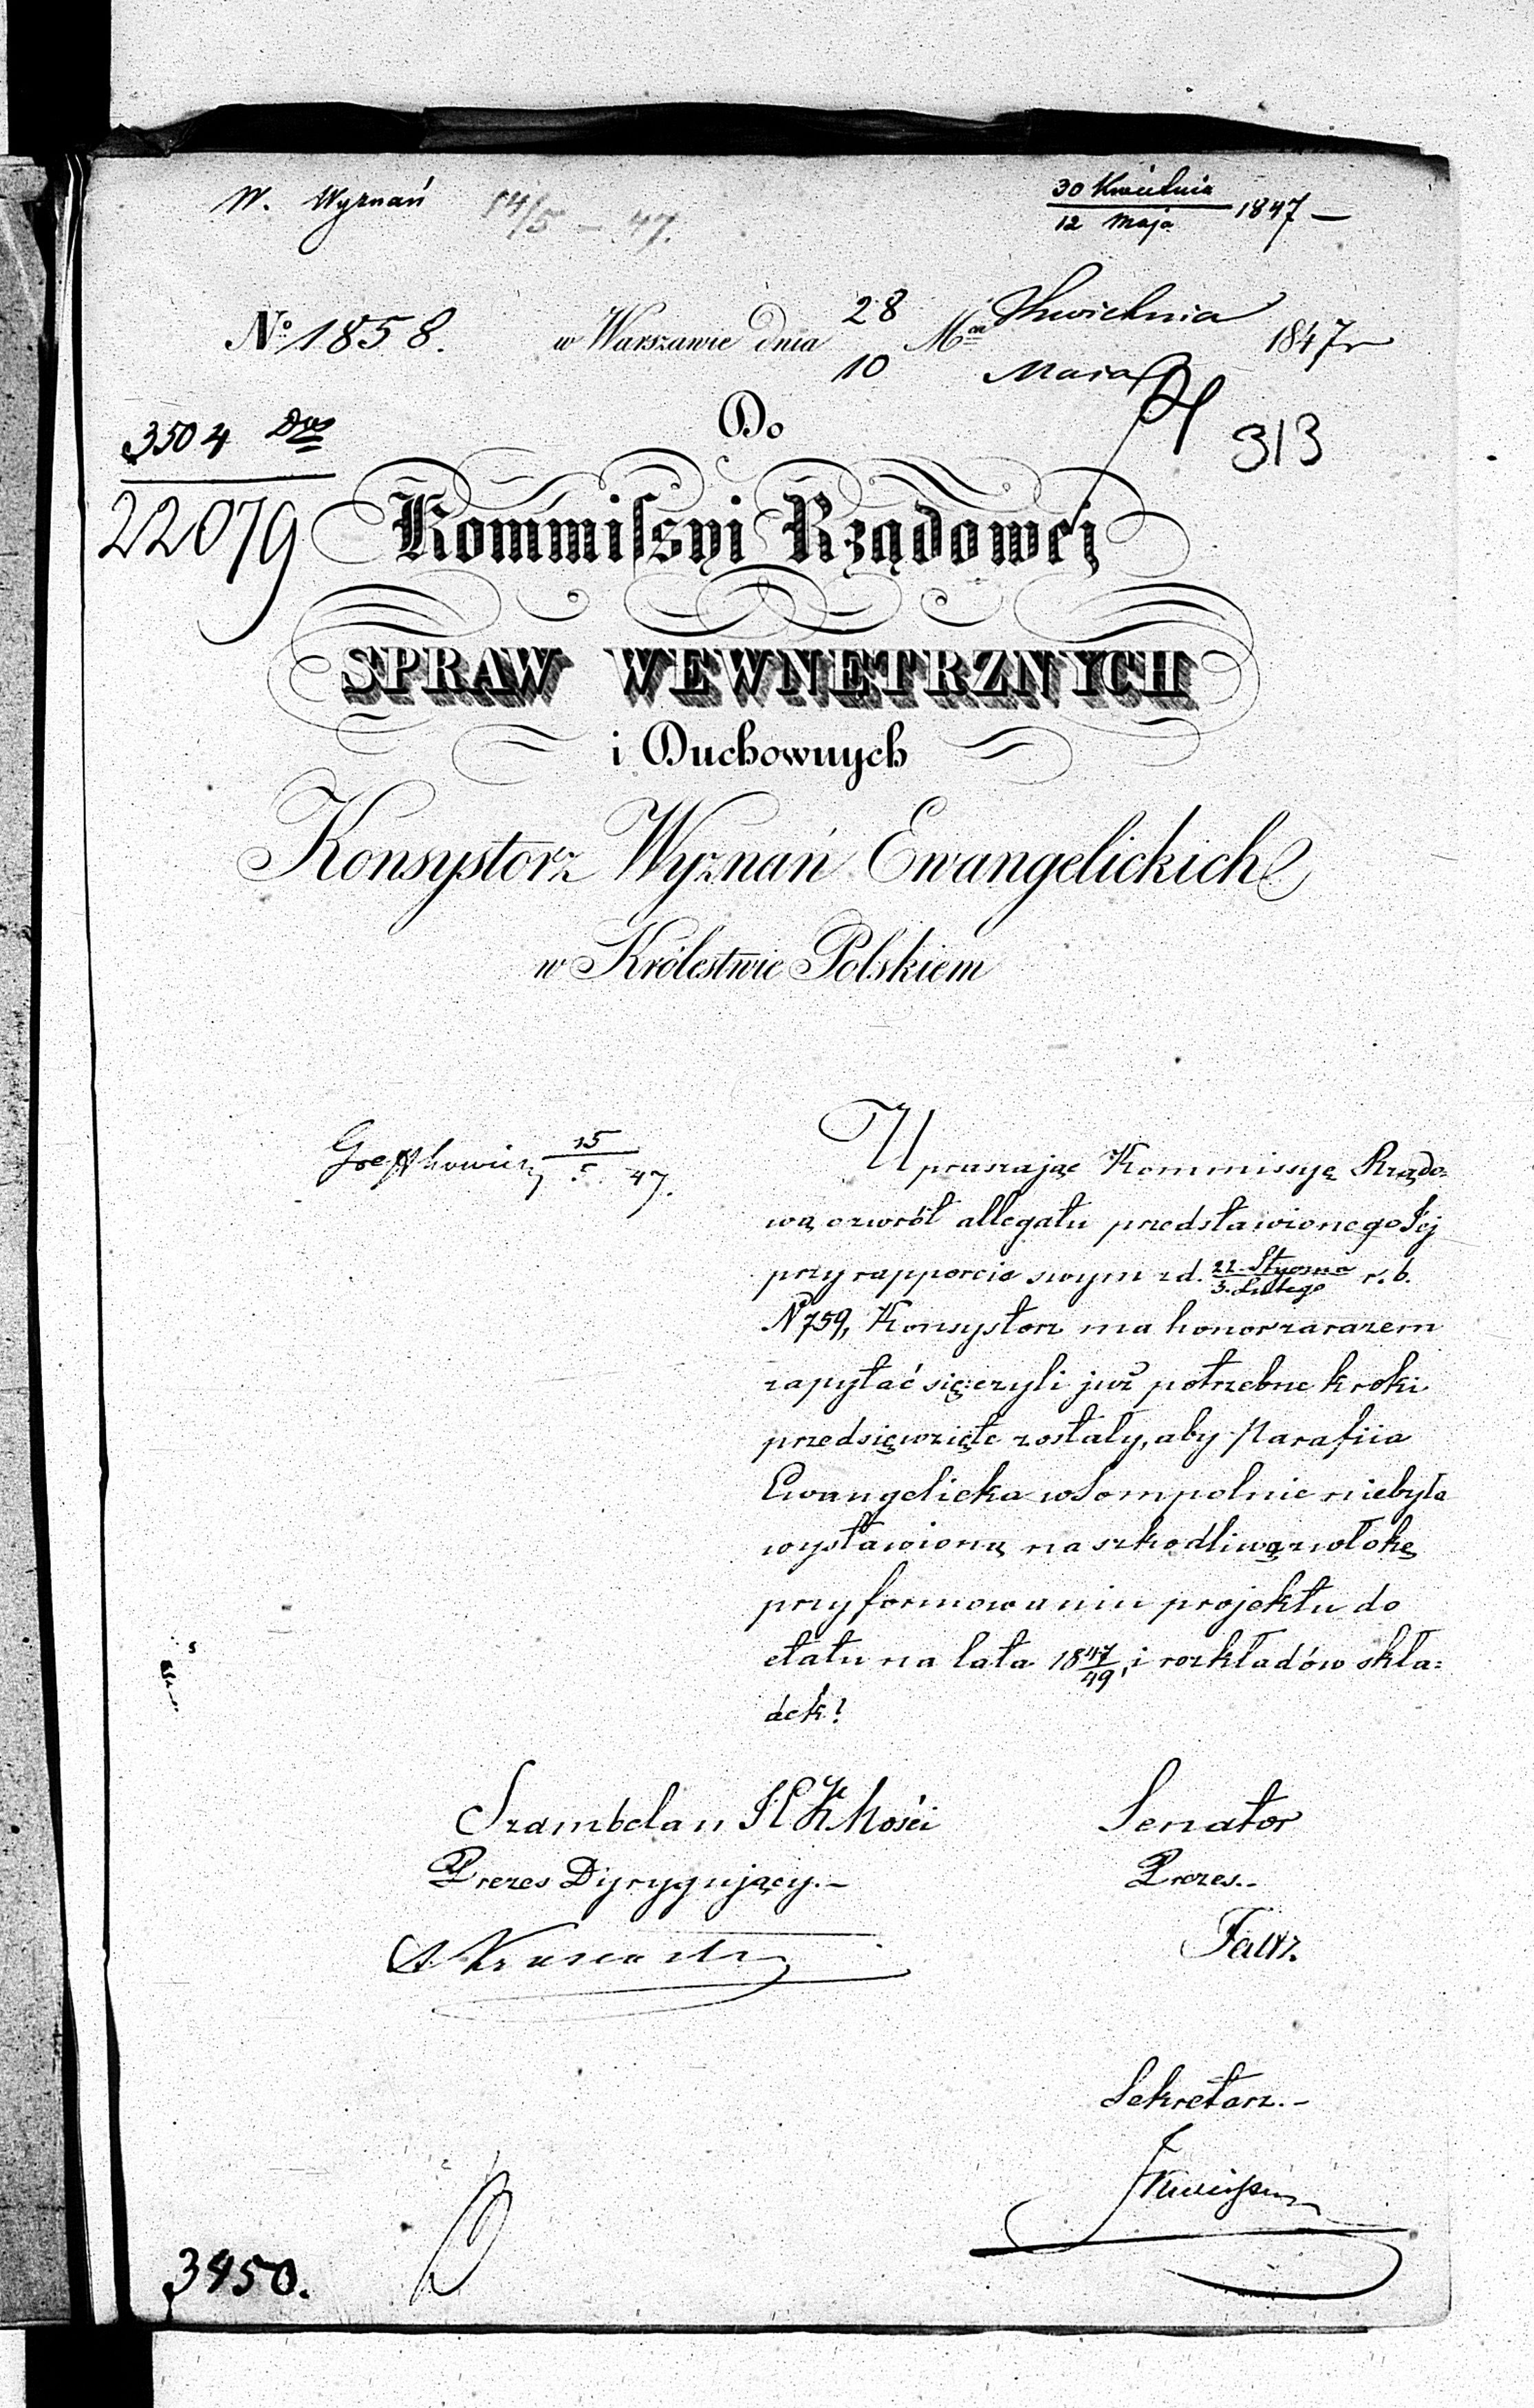 W. Wyznań 14/5 – 47.
30 Kwietnia
12 Maja 1847 –
No 1858. w Warszawie dnia 28 Mca Kwietnia 1847 r
10 Maja
313
3504 Dws
22079
Do
Kommissyi Rządowéj
SPRAW WEWNETRZNYCH
i Duchownych
Konsystorz Wyznań Ewangelickich
w Królestwie Polskiem
15
47.
Upraszając Kommissyę Rządo-
wą o zwrót allegatu przedstawionego Jej
przy rapporcie swym z d. 22. Stycznia
3. Lutego r. b.
N 759, Konsystorz ma honor zarazem
zapytać się: czyli już potrzebne kroki
przedsięwzięte zostały, aby Parafiia
Ewangelicka w Sompolnie niebyła
wystawioną na szkodliwą zwłokę
przy formowaniu projektu do
etatu na lata 1847/49, i rozkładów skła-
dek?
Szambelan JCKMości Senator
Prezes Dyrygujący. – Prezes. –
Sekretarz. –
3450.